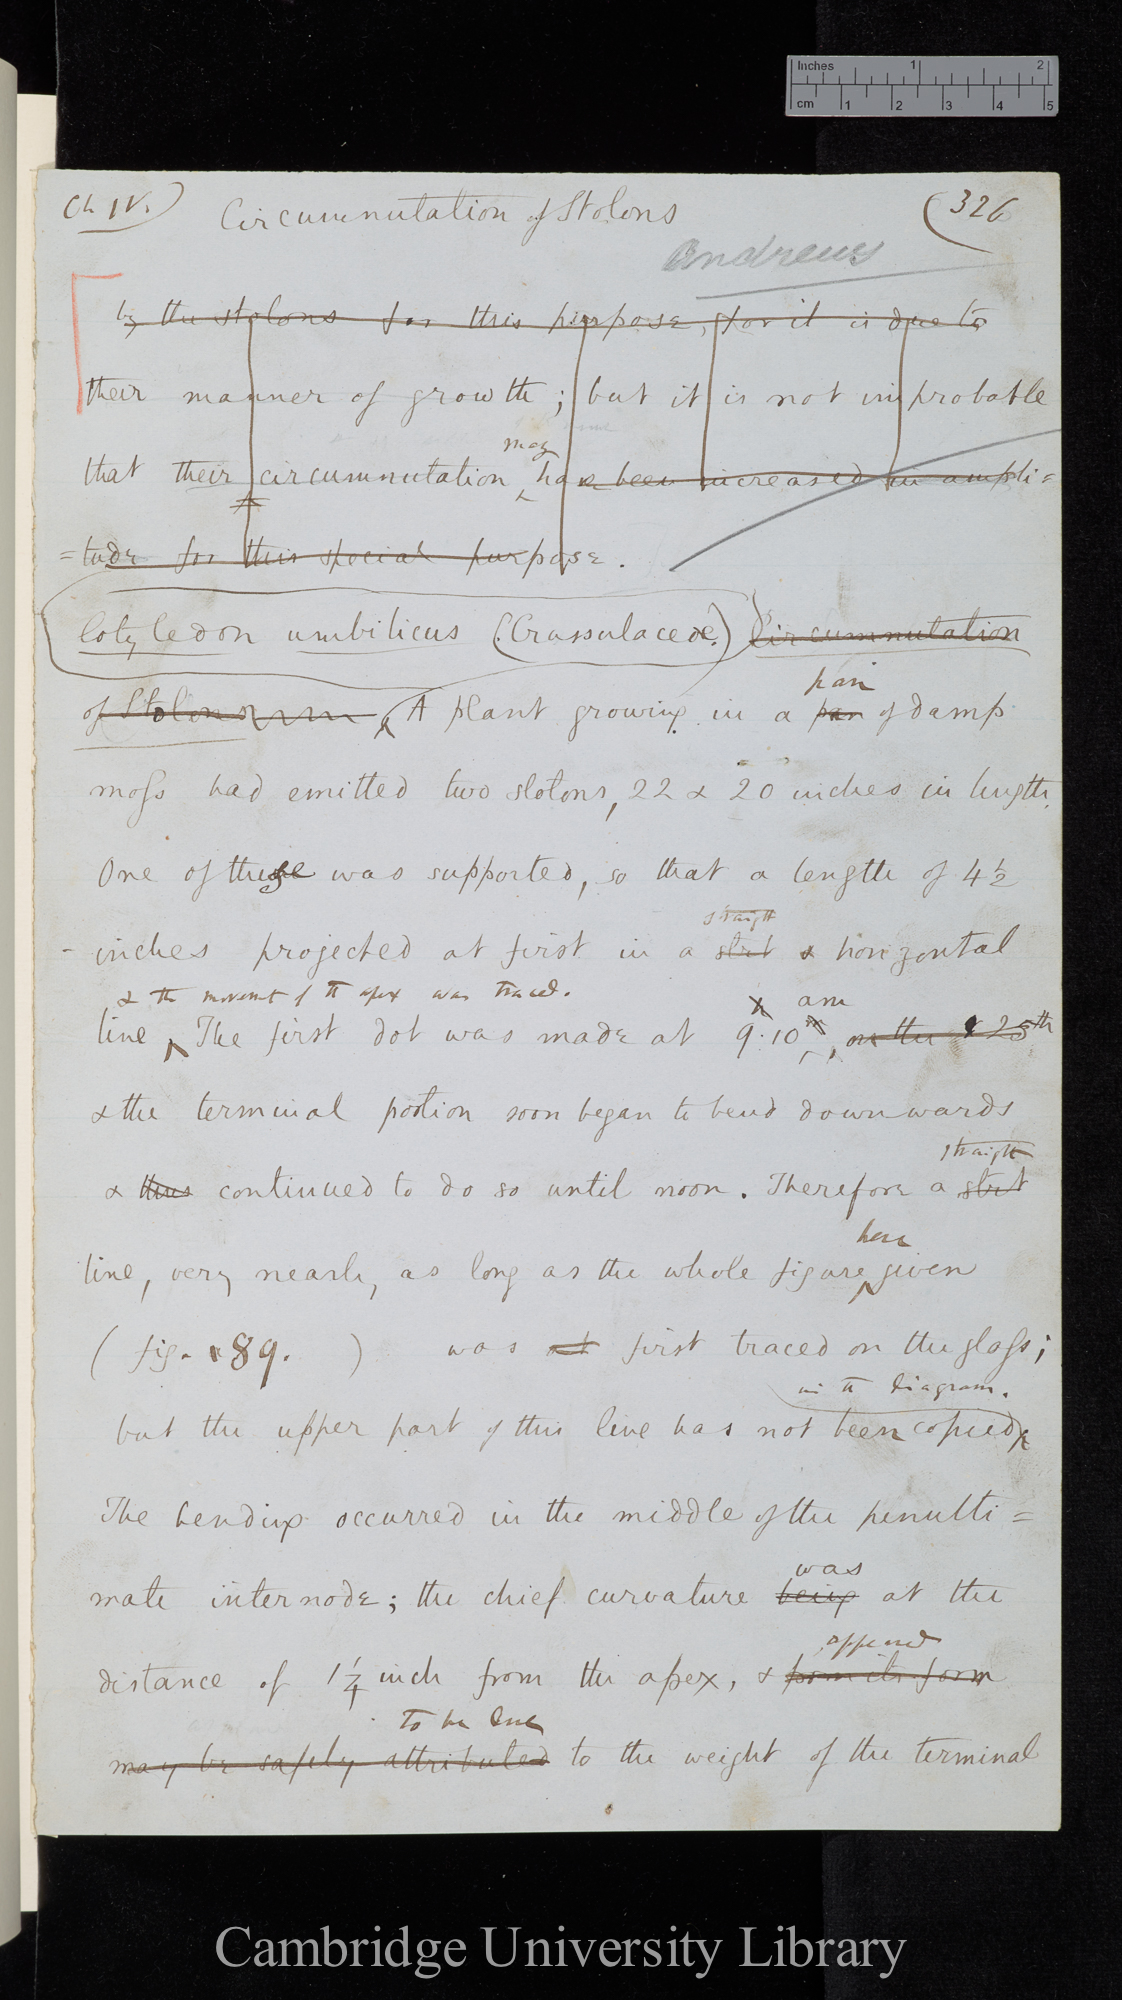 Inches 1 2
cm 1 2 3 4 5
Ch IV.) Circumnutation of Stolons (326
Andrews
by the stolons for this purpose, for it is due to
their manner of growth; but it is not improbable
may
that their circumnutation has been increased in ampli=
=tude for this special purpose.
Cotyledon umbilicus (Crassulaceæ.) Circumnutation
pan
of Stolons A plant growing in a pan of damp
moss had emitted two stolons, 22 & 20 inches in length.
One of these was supported, so that a length of 4½
straight
inches projected at first in a strt & horizontal
& the movement of the apex was traced. am
line, The first dot was made at 9.10, on the 25th
& the terminal portion soon began to bend downwards
straight
& thus continued to do so until noon. Therefore a strt
here
line, very nearly as long as the whole figure given
(fig. 89. ) was at first traced on the glass;
in the diagram.
but the upper part of this line has not been copied
The bending occurred in the middle of the penulti=
was
mate internode; the chief curvature being at the
appeared
distance of 1¼ inch from the apex, & from its form
to be due
may be safely attributed to the weight of the terminal
Cambridge University Library